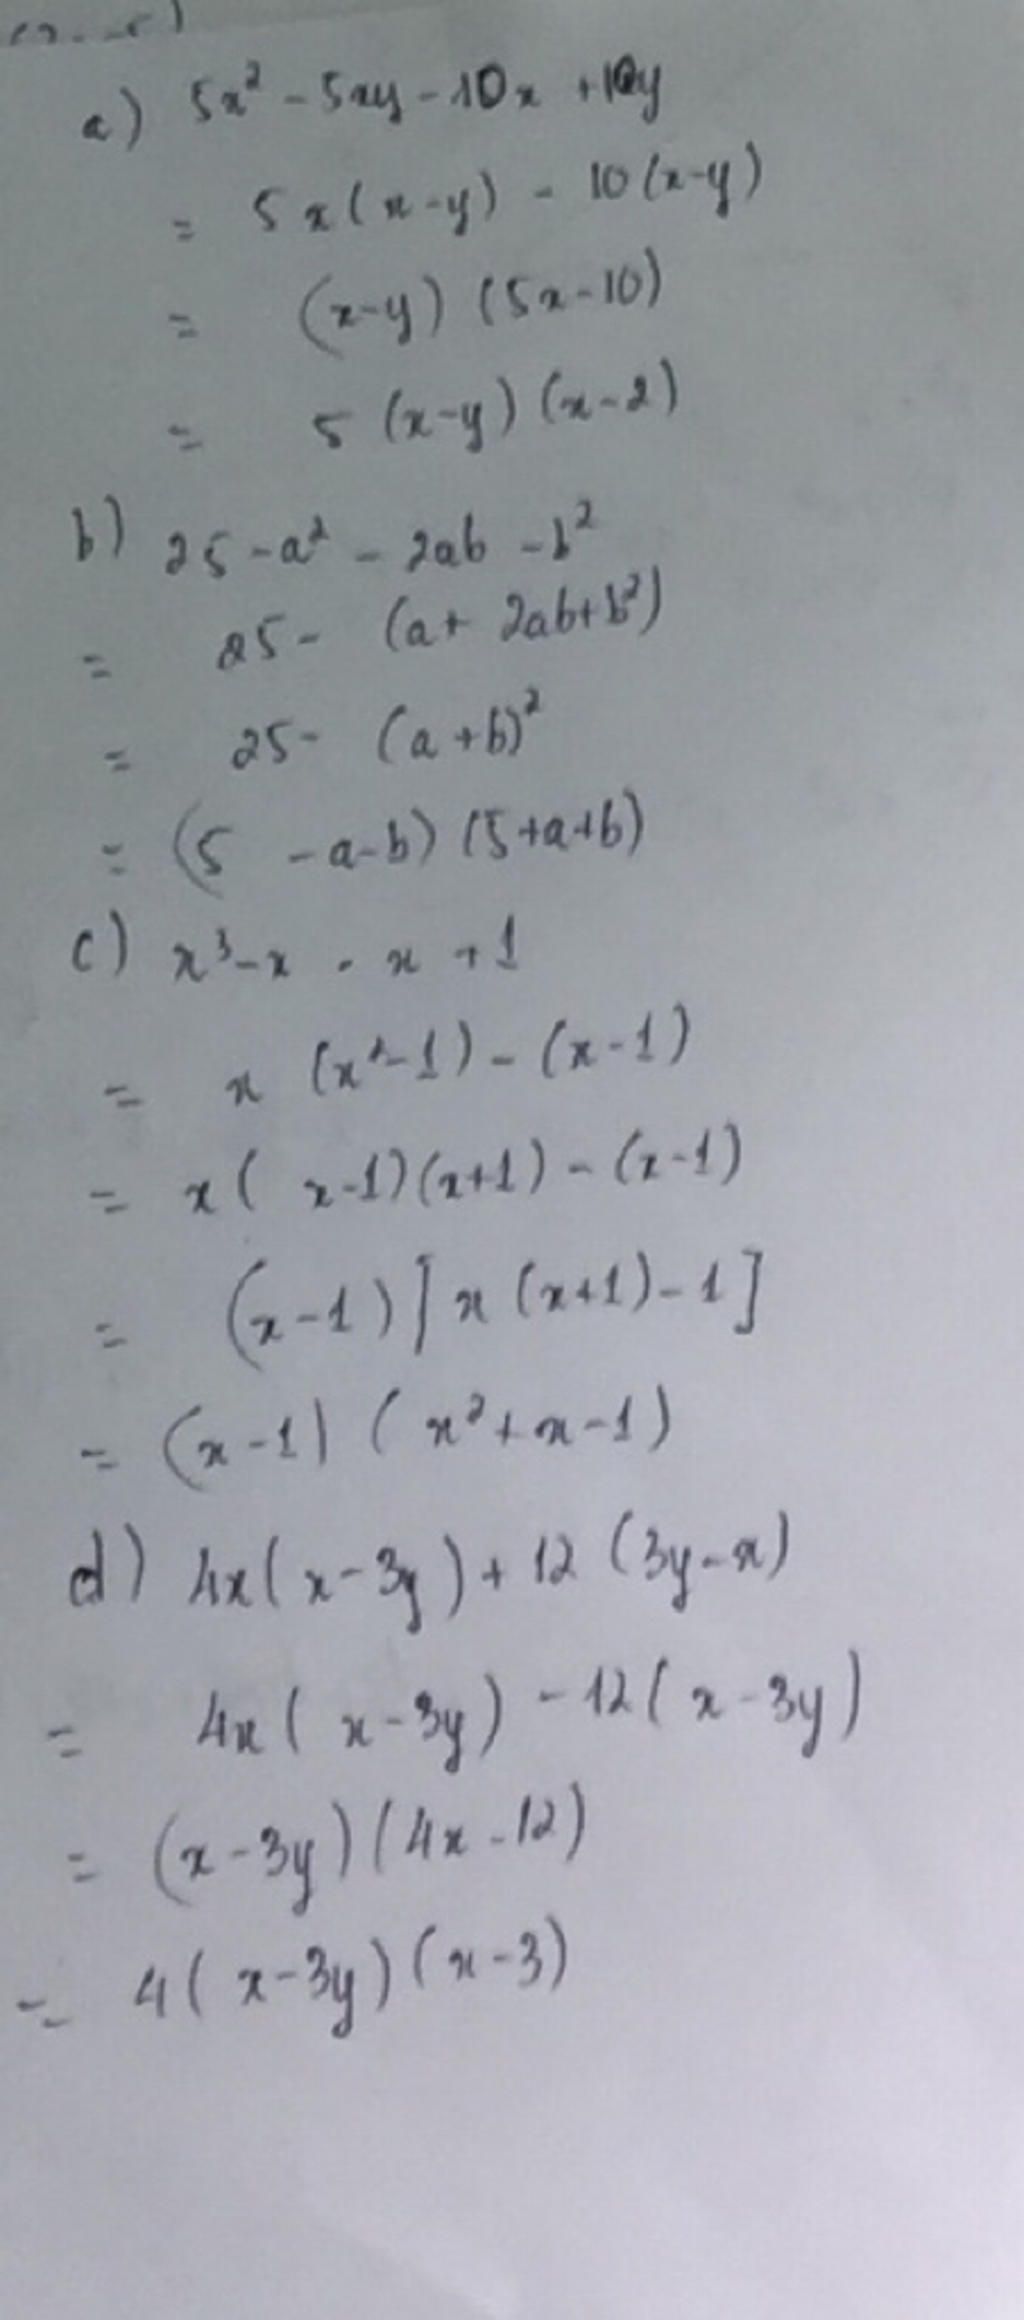 a) 5x² - 5xy - 10x + 10y
= 5x(x-y) - 10(x-y)
= (x-y) (5x-10)
= 5 (x-y) (x-2)
b) 25 - a² - 2ab - b²
= 25 - (a + 2ab + b²)
= 25 - (a+b)²
= (5 - a-b) (5+a+b)
c) x³ - x - x + 1
= x (x²-1) - (x-1)
= x( x-1)(x+1) - (x-1)
= (x-1)[x(x+1)-1]
= (x-1) (x²+x-1)
d) 4x(x-3y) + 12 (3y-x)
= 4x( x-3y) - 12( x-3y)
= (x-3y)(4x-12)
= 4( x-3y)(x-3)